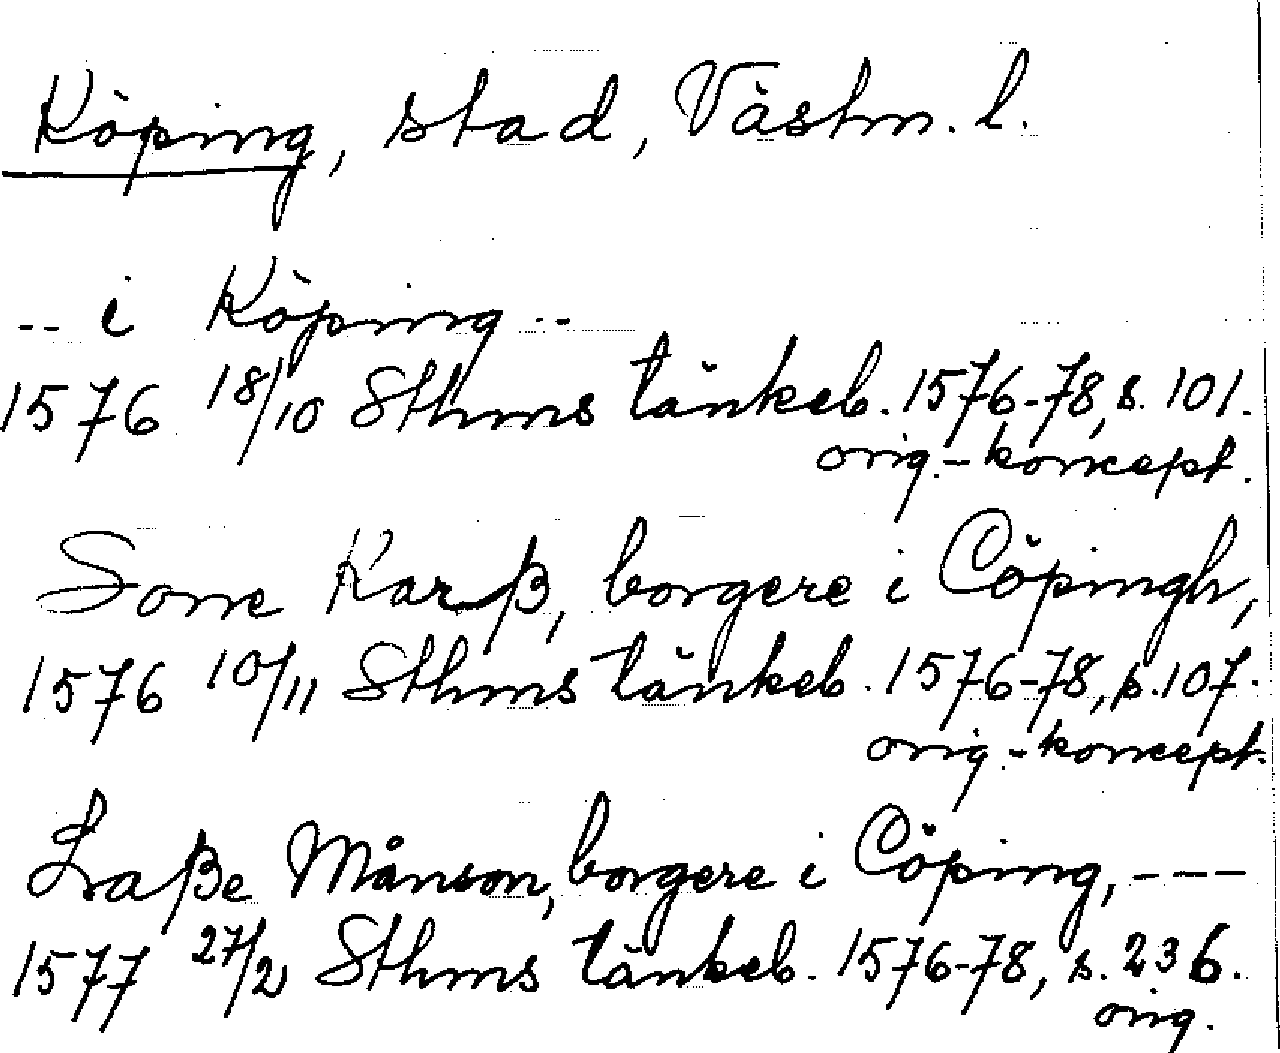 Köping, stad, Västm. l.
-- i Köping --
1576 18/10 Sthms tänkeb. 1576-78, s. 101.
orig.-koncept.
Sone Karß, borgere i Cöpingh,
1576 10/11 Sthms tänkeb. 1576-78, s. 107.
orig.-koncept.
Laße Månson, borgere i Cöping, ---
1577 27/2 Sthms tänkeb. 1576-78, s. 236.
orig.